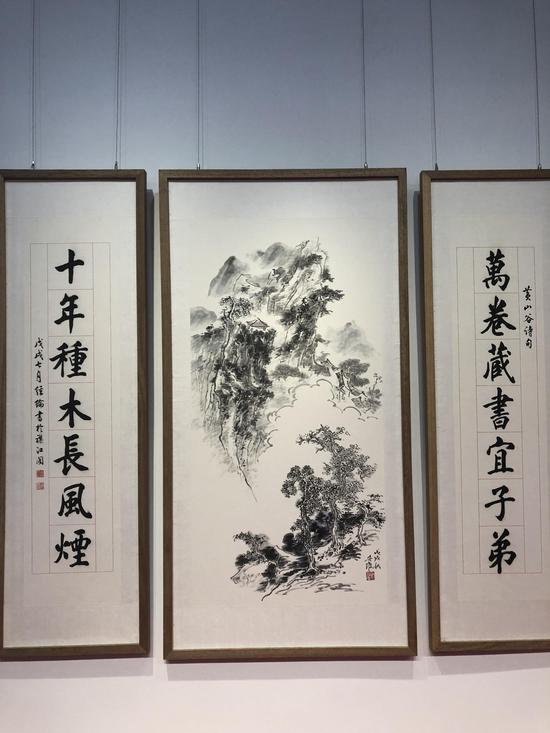 黄山谷诗句
萬卷藏書宜子弟
十年種木長風煙
戊戌七月
戊戌秋